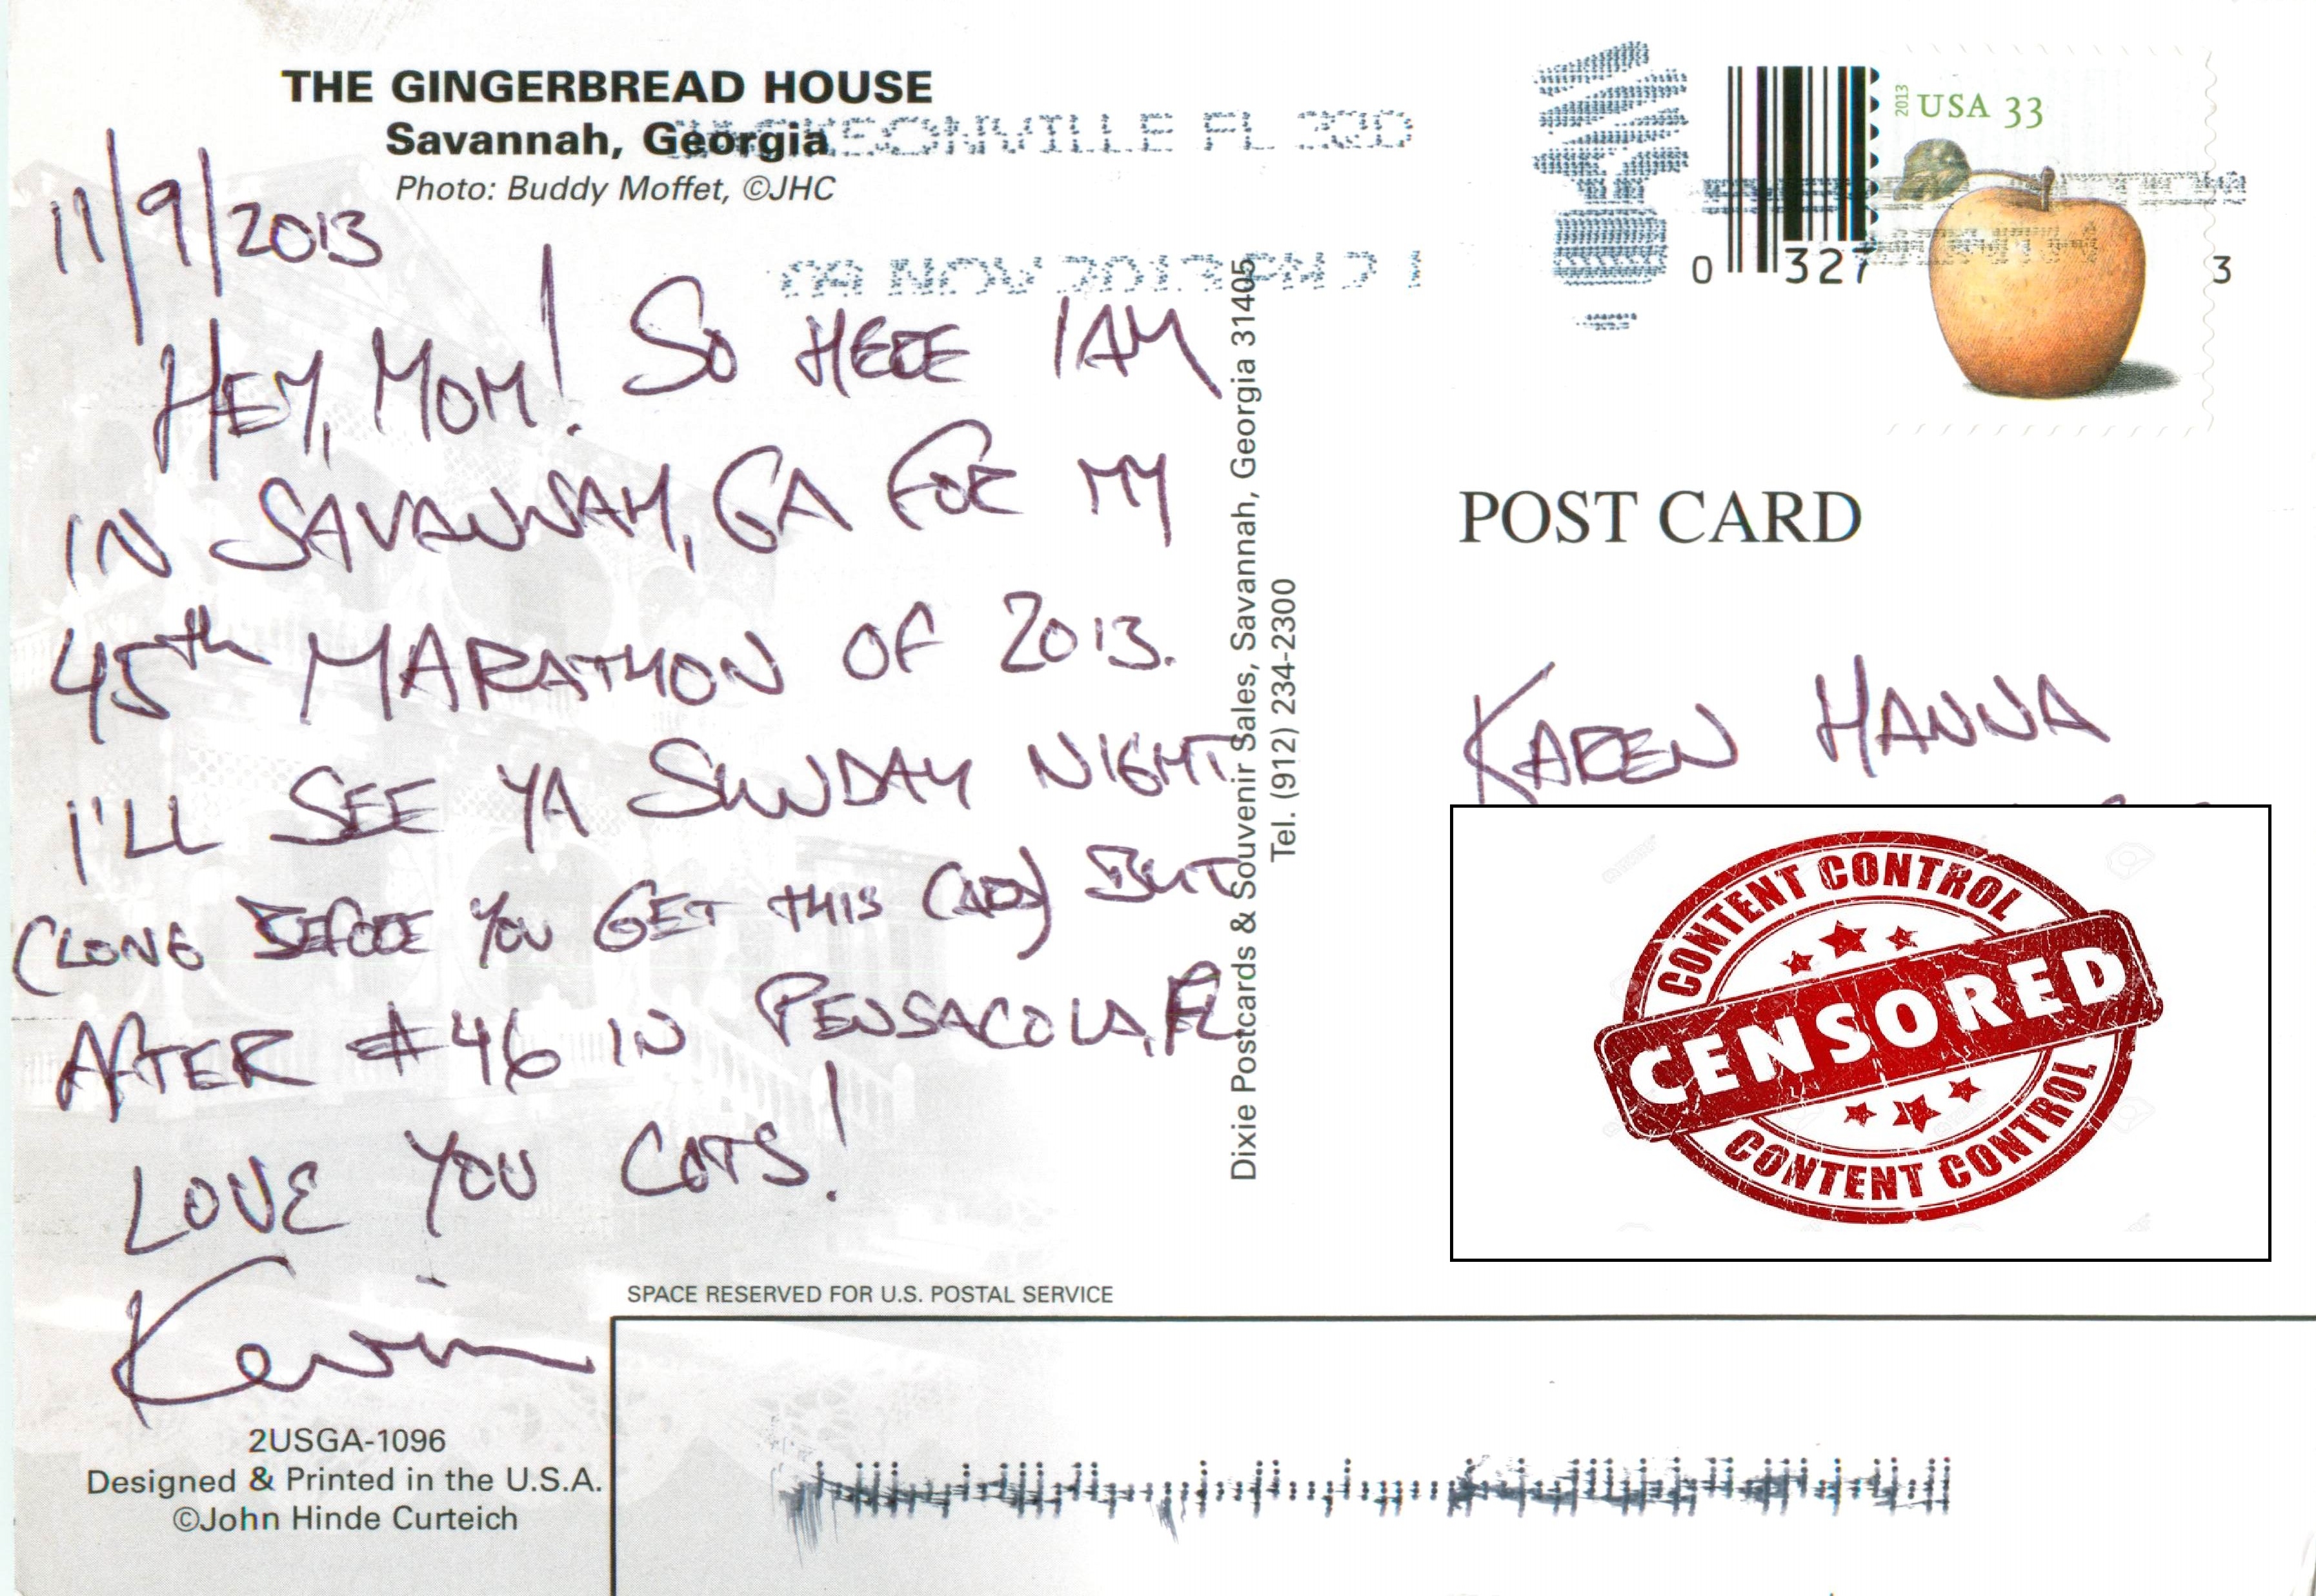 THE GINGERBREAD HOUSE
Savannah, Georgia
Photo: Buddy Moffet, ©JHC
JACKSONVILLE FL 320
09 NOV 2013 PM 2
11/9/2013
HEY, MOM! SO HERE I AM
IN SAVANNAH, GA FOR MY
45th MARATHON OF 2013.
I'LL SEE YA SUNDAY NIGHT
(LONG BEFORE YOU GET THIS CARD) BUT
AFTER #46 IN PENSACOLA, FL
LOVE YOU LOTS!
Kevin
2USGA-1096
Designed & Printed in the U.S.A.
©John Hinde Curteich
Dixie Postcards & Souvenir Sales, Savannah, Georgia 31405
Tel. (912) 234-2300
SPACE RESERVED FOR U.S. POSTAL SERVICE
2013
USA 33
0 327 3
POST CARD
KAREN HANNA
CONTENT CONTROL
CENSORED
CONTENT CONTROL